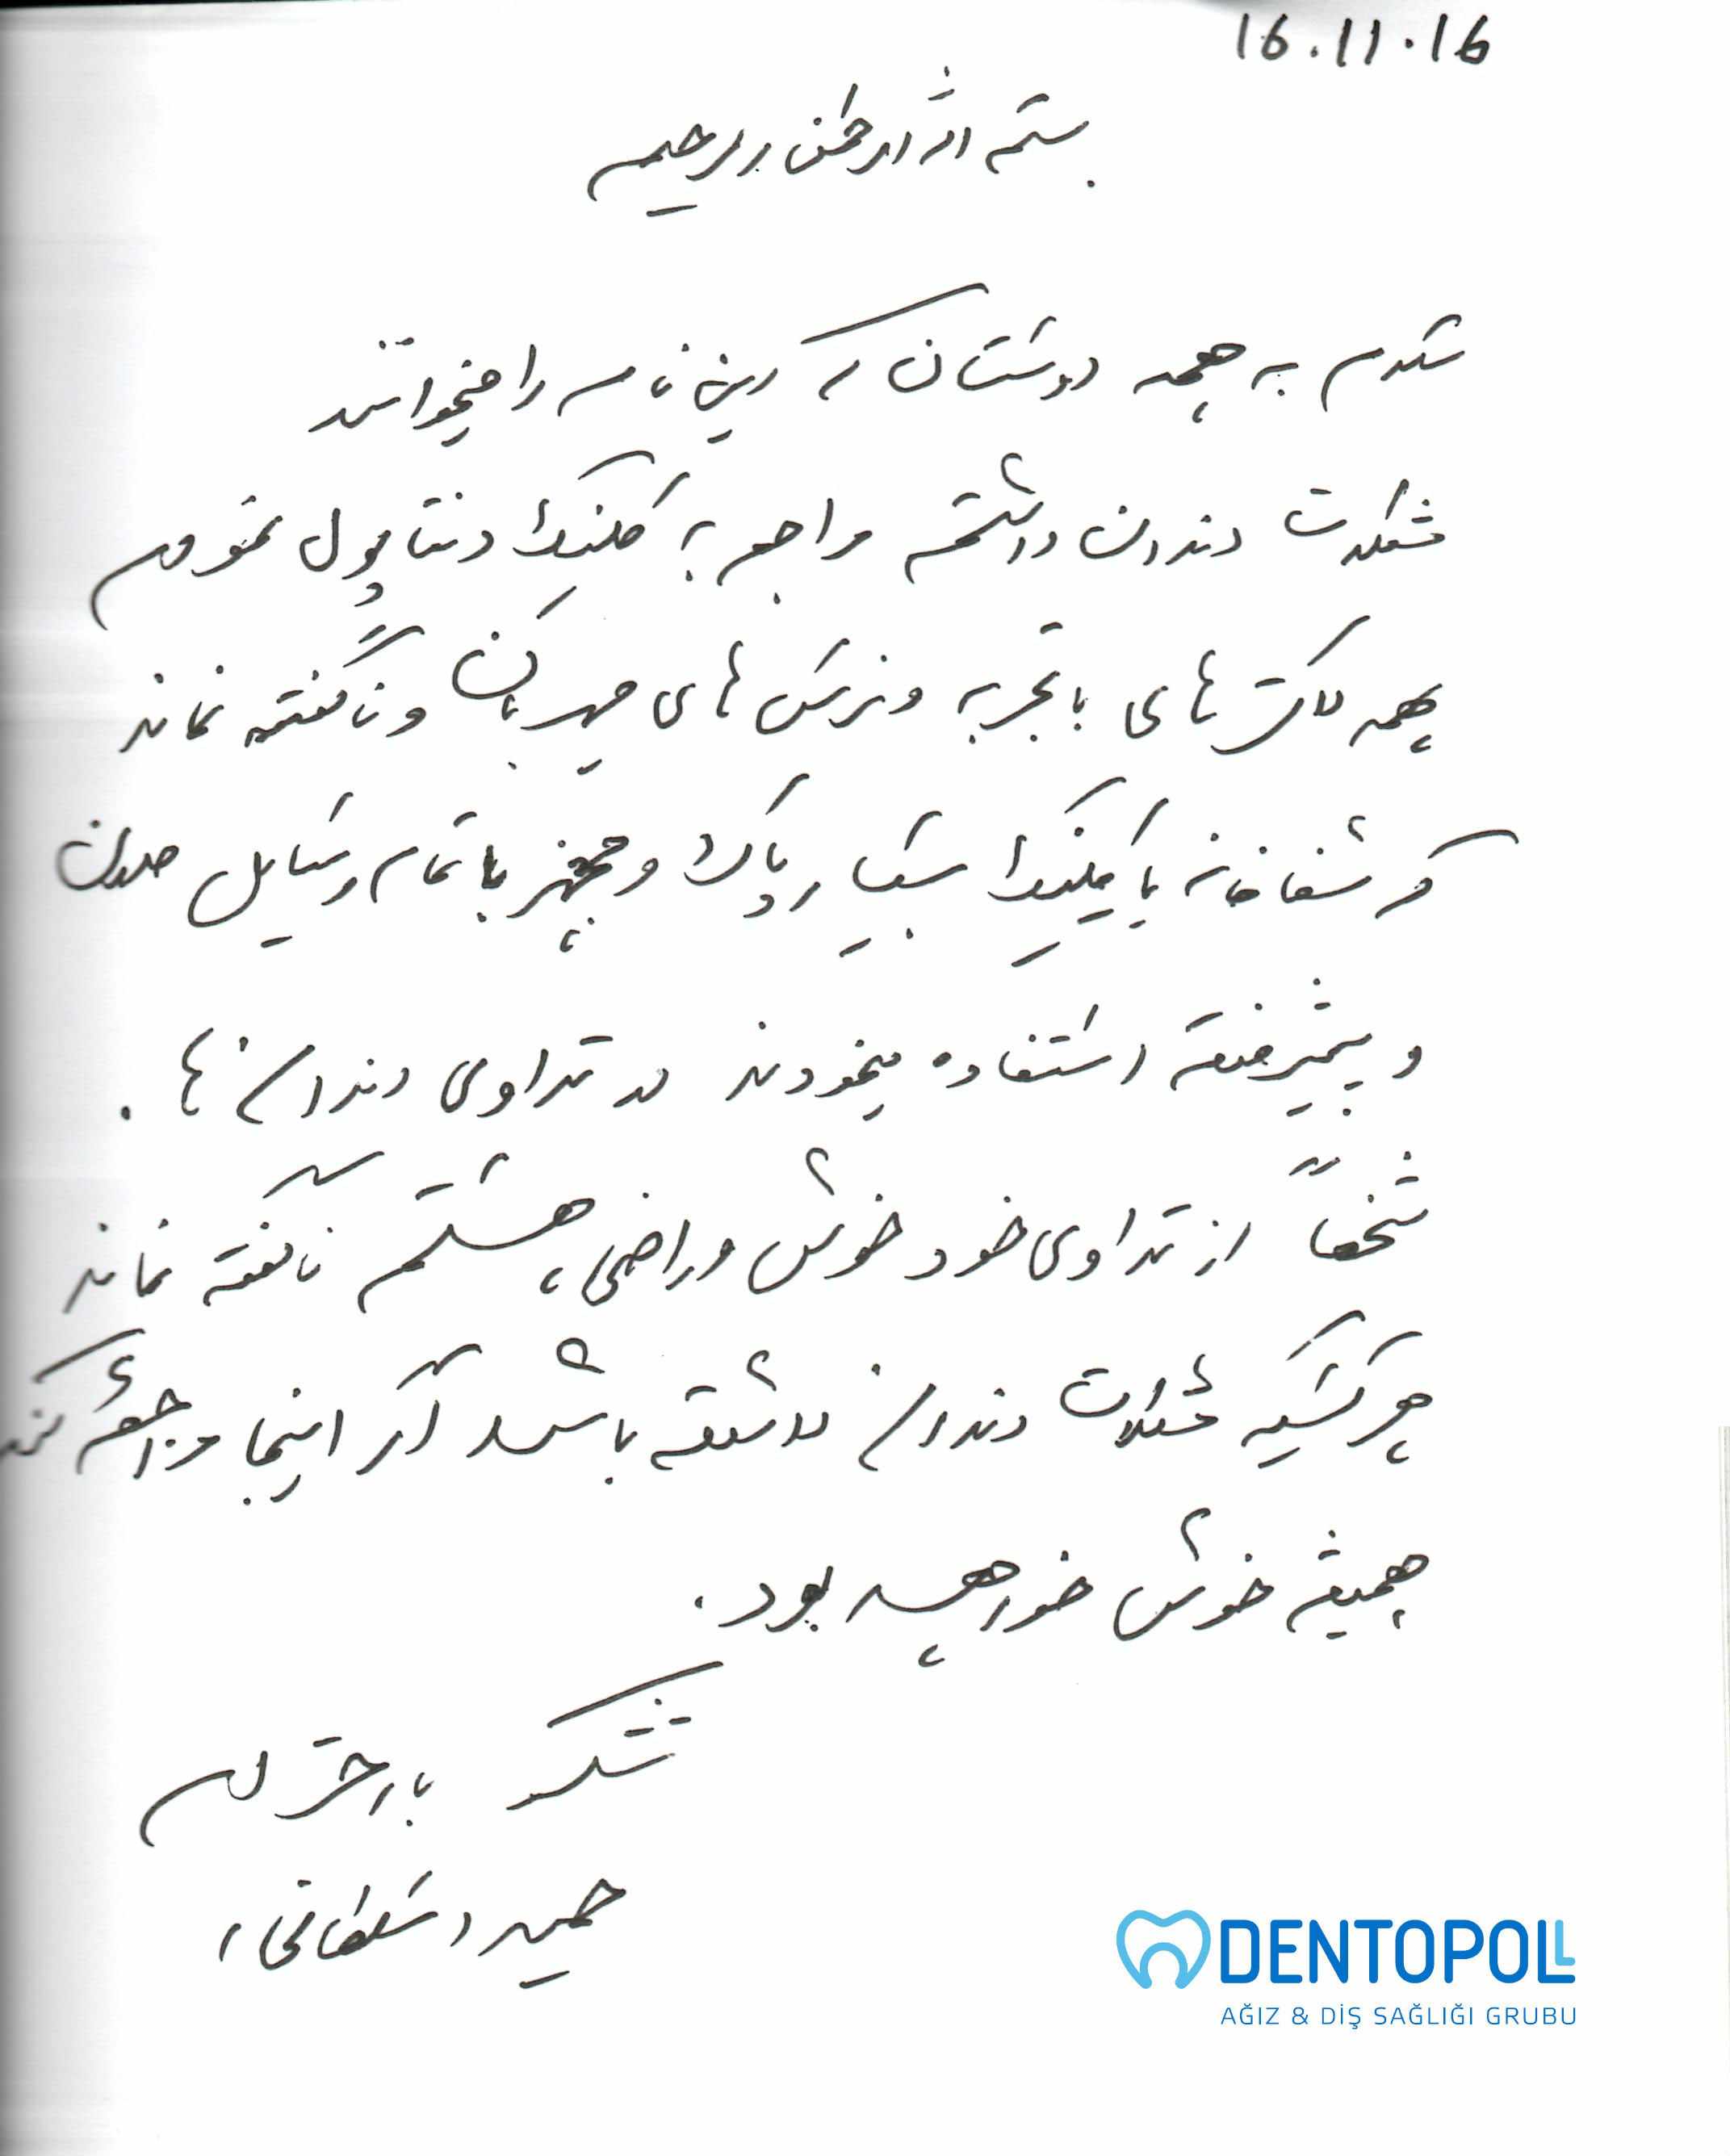 16.11.16
بسم الله الرحمن الرحیم
سلام به همه دوستان که این نامه را میخوانند
مشکلات دندان داشتم مراجعه به کلنیک دنتاپول نمودم
همه داکتر های با تجربه و نرس های مهربان و ناگفته نماند
که شفاخانه یا کلنیک بسیار پاک و مجهز با تمام وسایل
و پیشرفته استفاده مینمودند در تداوی دندان ها.
شخصاً از تداوی خود خوش و راضی هستم ناگفته نماند
هر کسیکه مشکلات دندان داشته باشد اگر اینجا مراجعه کند
همیشه خوش خواهد بود.
تشکر با احترام
حمید سلطانی
DENTOPOLL
AĞIZ & DİŞ SAĞLIĞI GRUBU